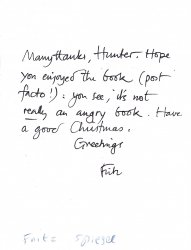 Many thanks, Hunter. Hope
you enjoyed the book (post
facto!): you see, it's not
really an angry book. Have
a good Christmas.
Greetings
Fritz
Fritz Spiegel